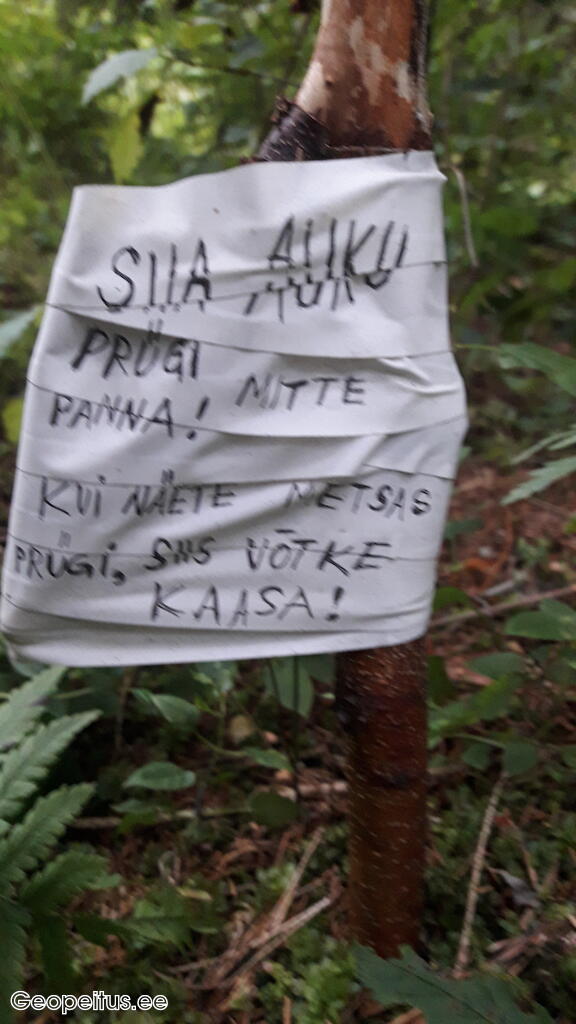 SIIA AUKU
PRÜGI MITTE
PANNA!
KUI NÄETE METSAS
PRÜGI, SIIS VÕTKE
KAASA!
Geopeitus.ee